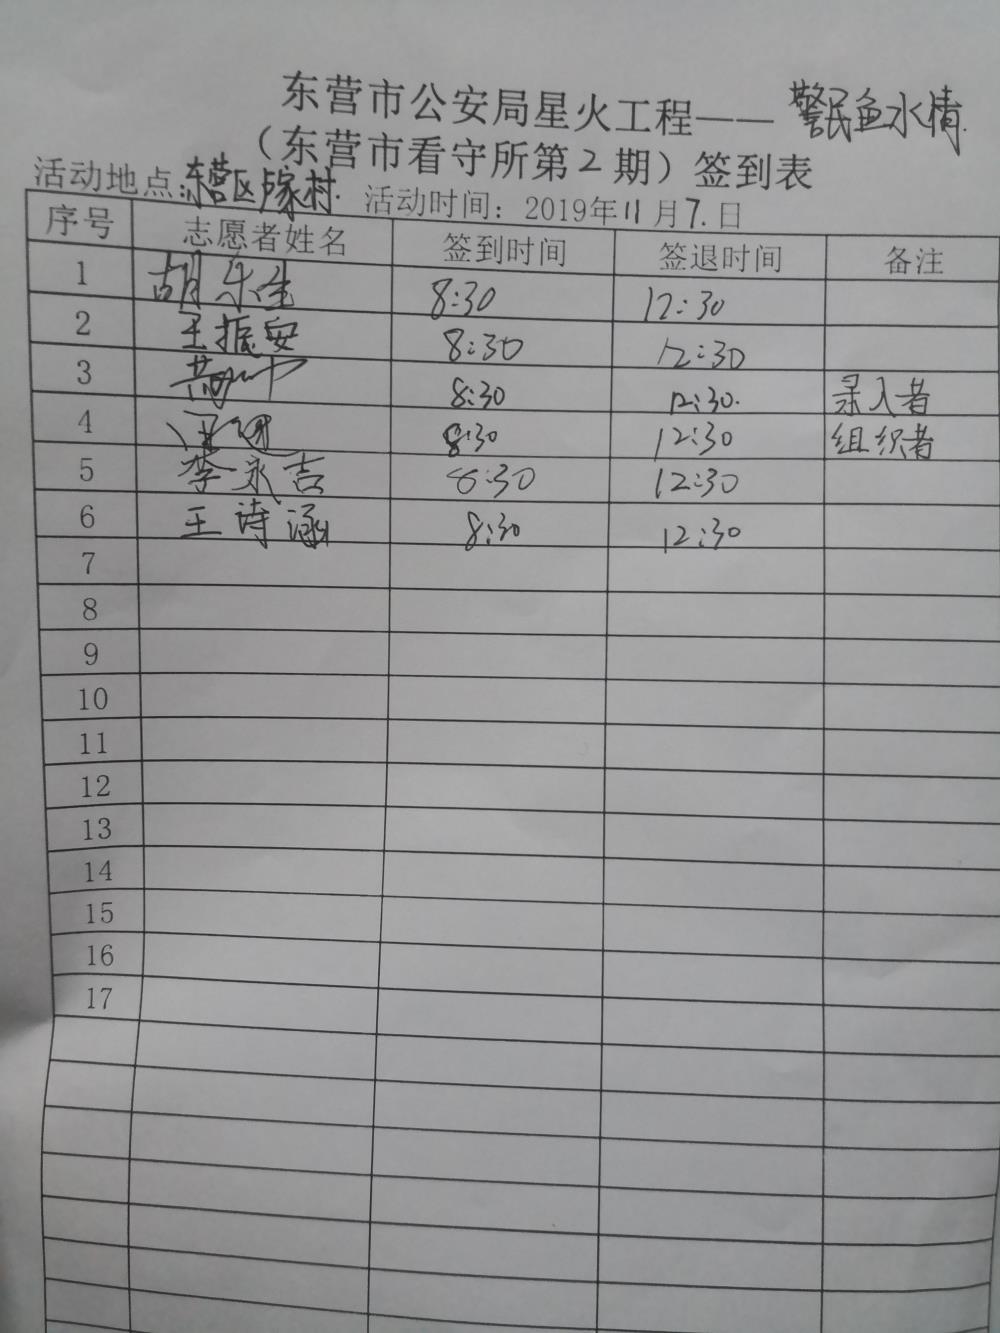 东营市公安局星火工程——警民鱼水情
（东营市看守所第2期）签到表
活动地点:东营区卢家村 活动时间: 2019年11月7.日
序号 志愿者姓名 签到时间 签退时间 备注
1 胡乐生 8:30 12:30
2 王振安 8:30 12:30
3 8:30 12:30. 录入者
4 8:30 12:30 组织者
5 李永吉 8:30 12:30
6 王诗涵 8:30 12:30
7
8
9
10
11
12
13
14
15
16
17